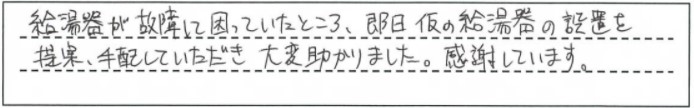 給湯器が故障して困っていたところ、即日仮の給湯器の設置を
提案、手配していただき大変助かりました。感謝しています。